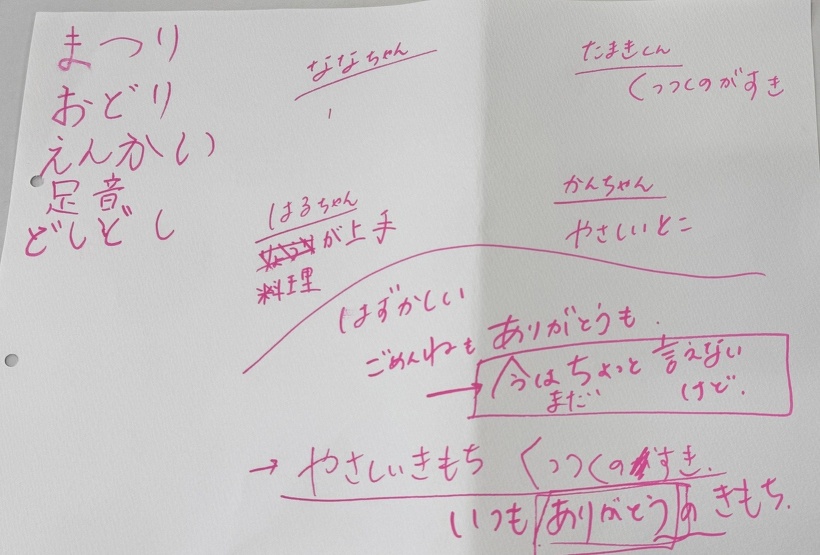 まつり
おどり
えんかい
足音
どしどし
ななちゃん
たまきくん
くっつくのがすき
はるちゃん
が上手
料理
かんちゃん
やさしいとこ
はずかしい
ごめんねも ありがとうも.
今はちょっと 言えない
まだ けど.
→ やさしいきもち くっつくのがすき.
いつも ありがとう の きもち.